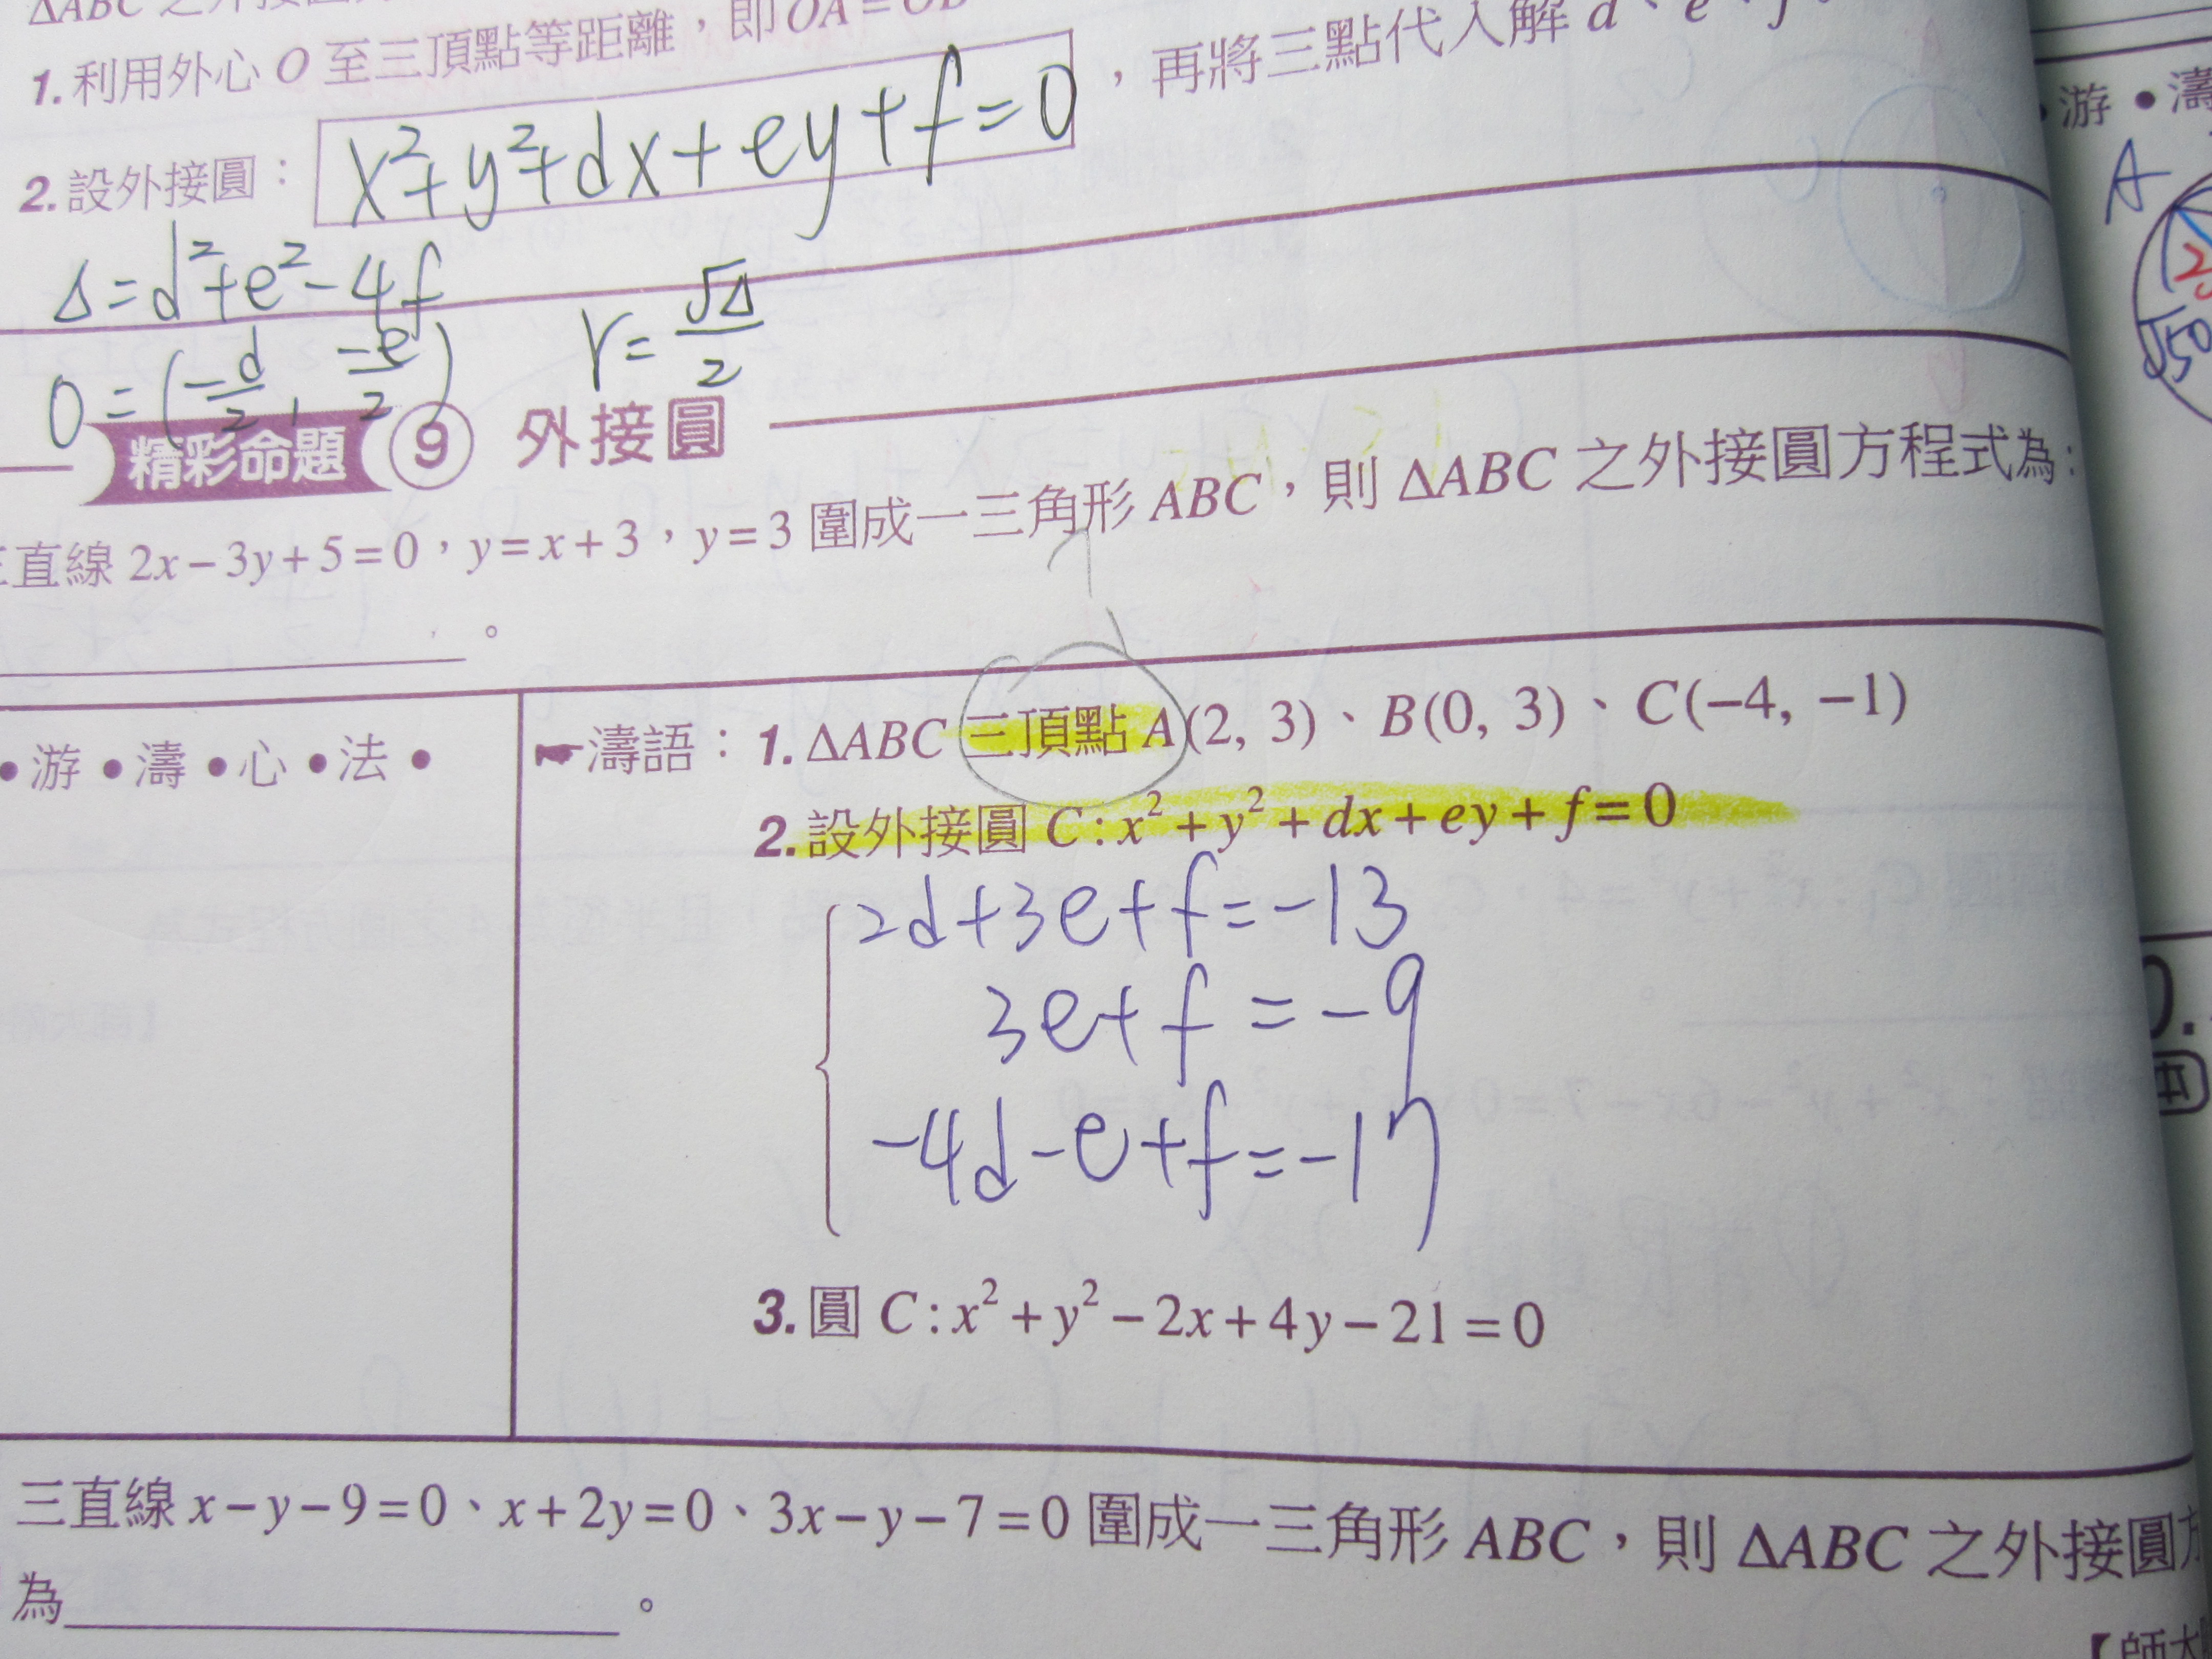 △ABC 之外接圓
1. 利用外心 O 至三頂點等距離，即 OA = OB
2. 設外接圓： x²+y²+dx+ey+f=0 ，再將三點代入解 d、e、f。
△=d²+e²-4f
O=(-d/2, -e/2) r=√△/2
精彩命題 ⑨ 外接圓
三直線 2x−3y+5=0，y=x+3，y=3 圍成一三角形 ABC，則 △ABC 之外接圓方程式為：
。
•游•濤•心•法•
濤語：1. △ABC 三頂點 A(2, 3)、B(0, 3)、C(−4, −1)
2. 設外接圓 C : x²+y²+dx+ey+f=0
2d+3e+f=-13
3e+f=-9
-4d-e+f=-17
3. 圓 C : x²+y²−2x+4y−21=0
三直線 x−y−9=0、x+2y=0、3x−y−7=0 圍成一三角形 ABC，則 △ABC 之外接圓方
為 。
【師大
•游•濤
A